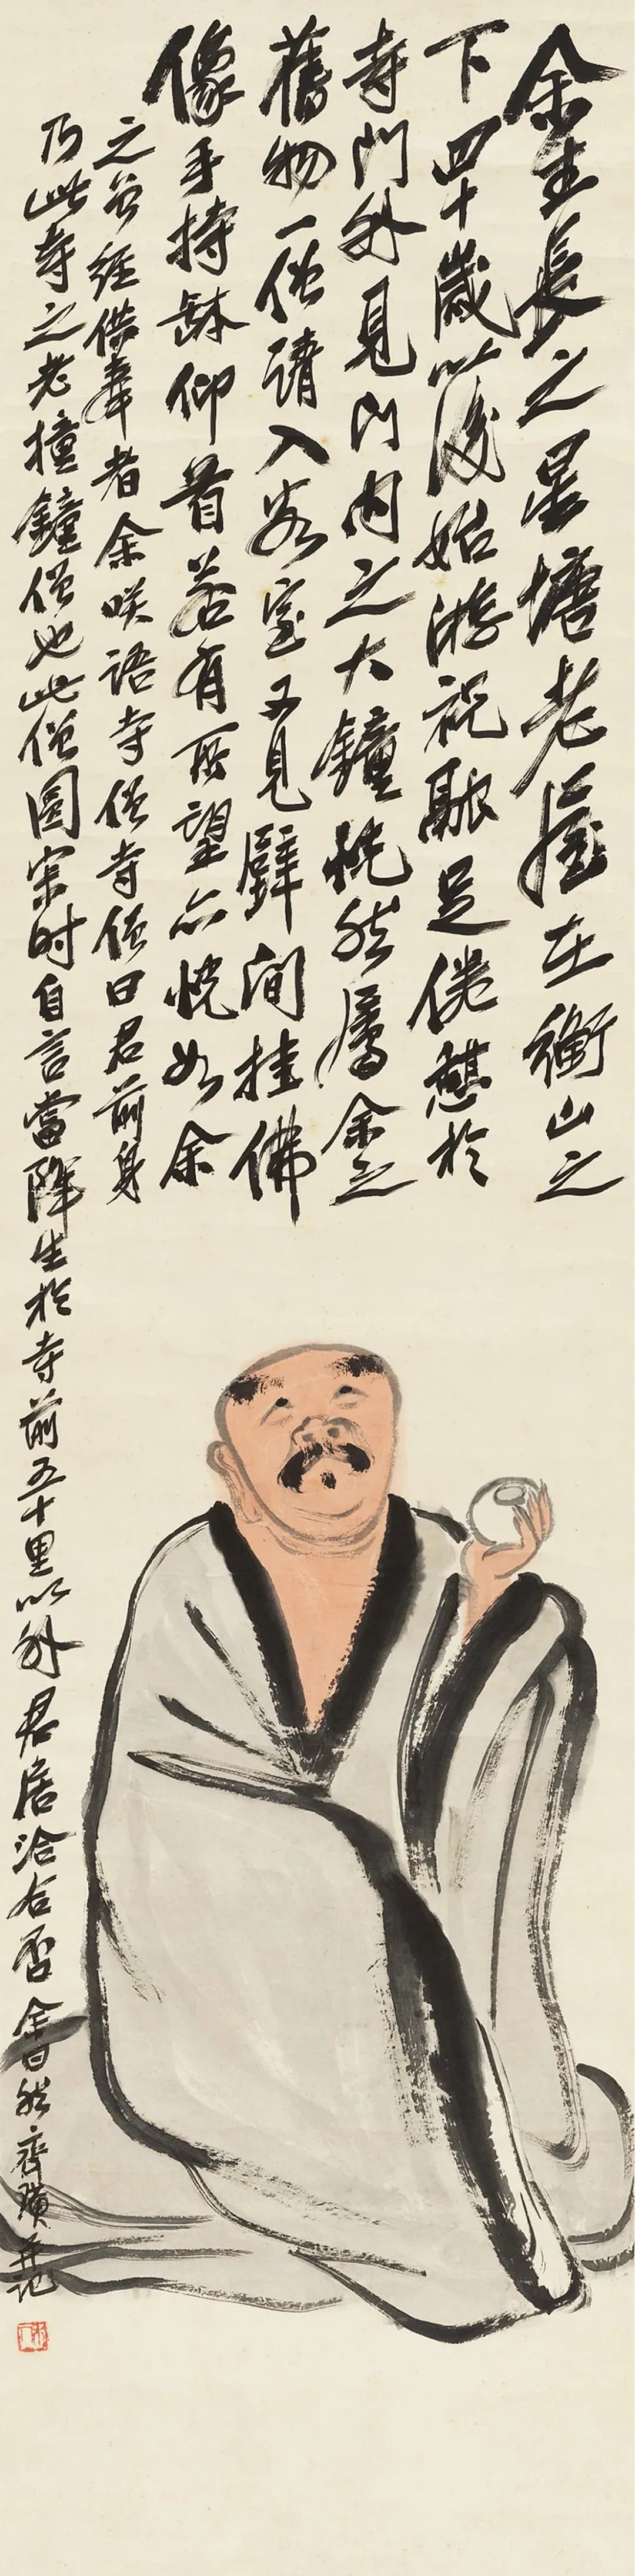 余生長之星塘老屋在衡山之
下四十歲以後始游祝融足倦憩於
寺門外見門内之大鐘恍然屬余之
舊物一僧請入客室又見壁间挂佛
像手持缽仰首若有所望亦恍如余
之曾經供奉者余咲語寺僧寺僧曰君前身
乃此寺之老撞鐘僧也此僧圓寂时自言當降生於寺前五十里以外君居洽合否余曰然齊璜并记
木人